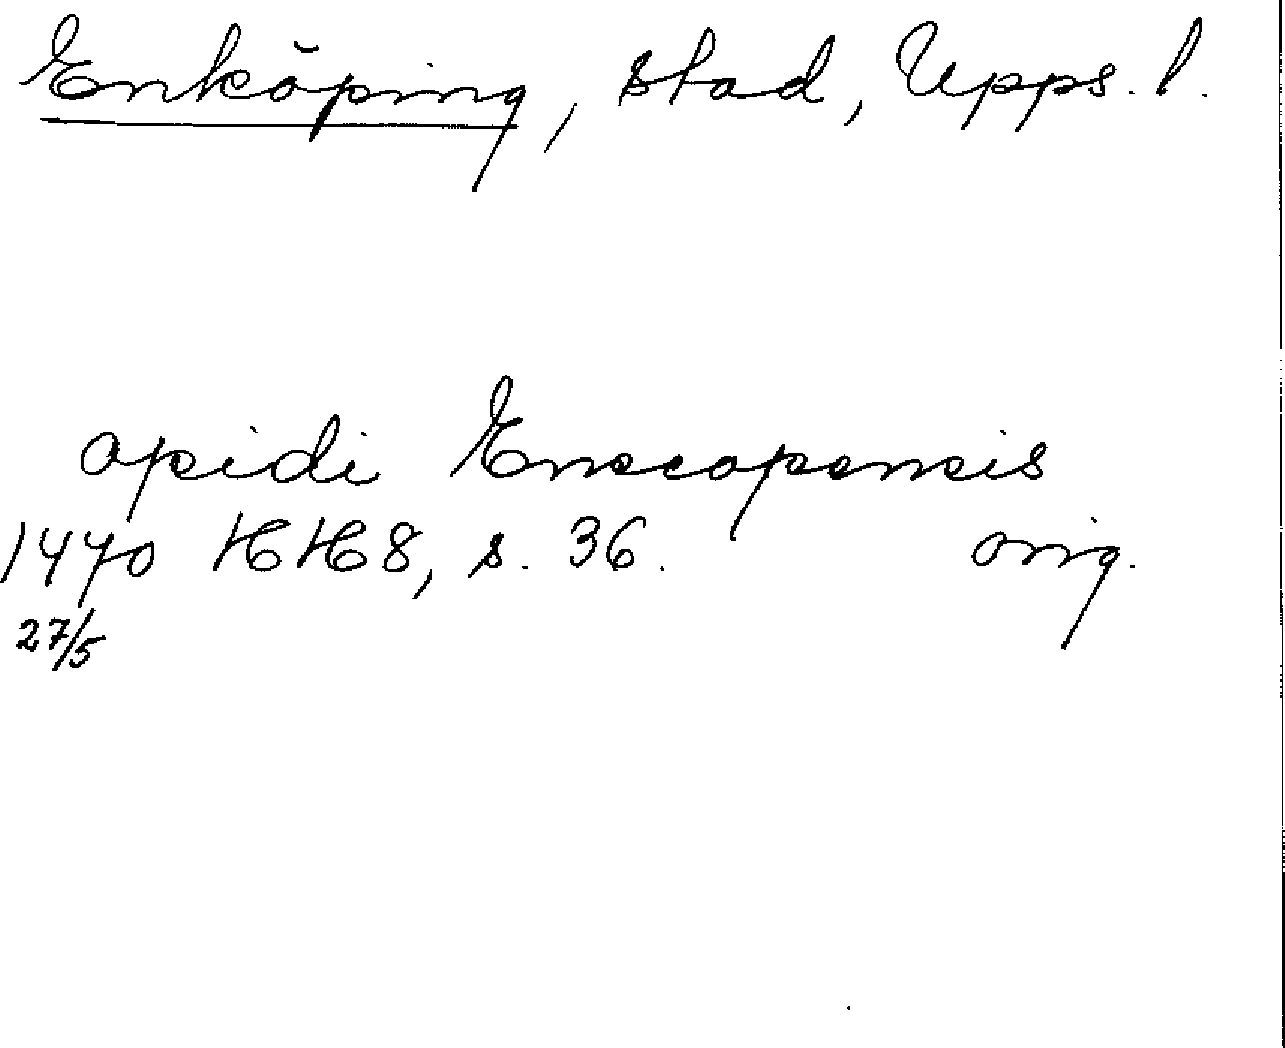 Enköping, stad, Upps. l.
opidi Enecopensis
1470 HH 8, s. 36. orig.
27/5